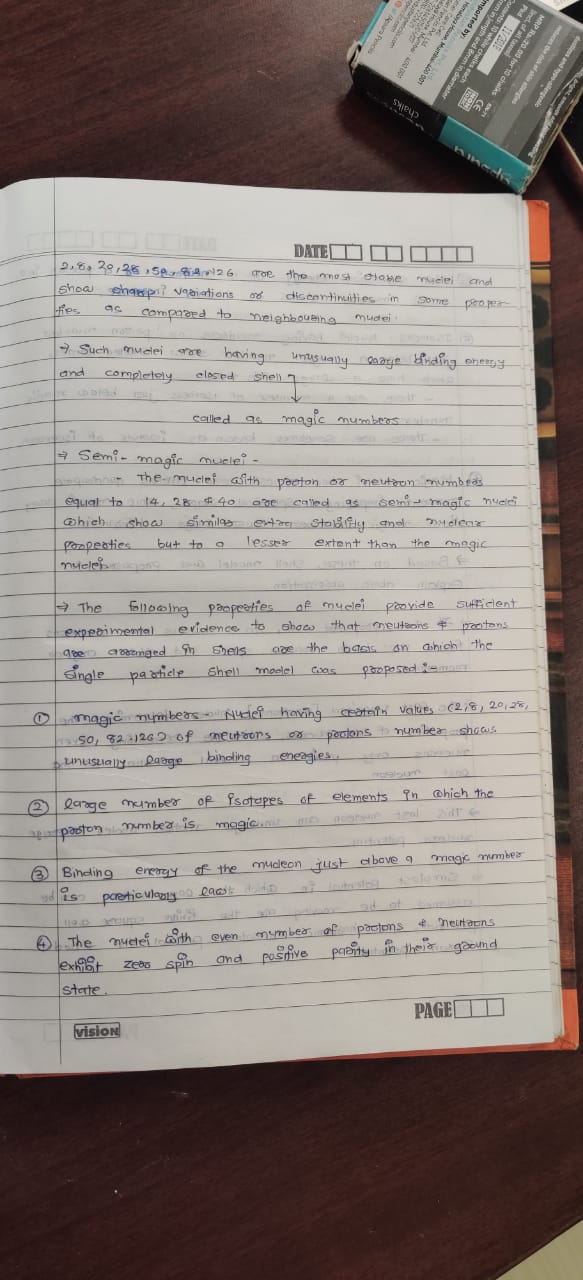 MRP Rs. 20.00 for 10 chalks
chalks
DATE
2, 8, 20, 28, 50, 82, 126 are the most stable nuclei and
show sharp variations or discontinuities in some proper-
ties as compared to neighbouring nuclei.
→ Such nuclei are having unusually large binding energy
and completely closed shell
called as magic numbers
→ Semi-magic nuclei -
The nuclei with proton or neutron numbers
equal to 14, 28 & 40 are called as semi-magic nuclei
which show similar extra stability and nuclear
properties but to a lesser extent than the magic
nuclei.
→ The following properties of nuclei provide sufficient
experimental evidence to show that neutrons & protons
are arranged in shells are the basis on which the
single particle shell model was proposed :-
① magic numbers - Nuclei having certain values (2, 8, 20, 28,
50, 82, 126) of neutrons or protons number shows
unusually large binding energies.
② large number of isotopes of elements in which the
proton number is magic.
③ Binding energy of the nucleon just above a magic number
is particularly
④ The nuclei with even number of protons & neutrons
exhibit zero spin and positive parity in their ground
state.
PAGE
vision